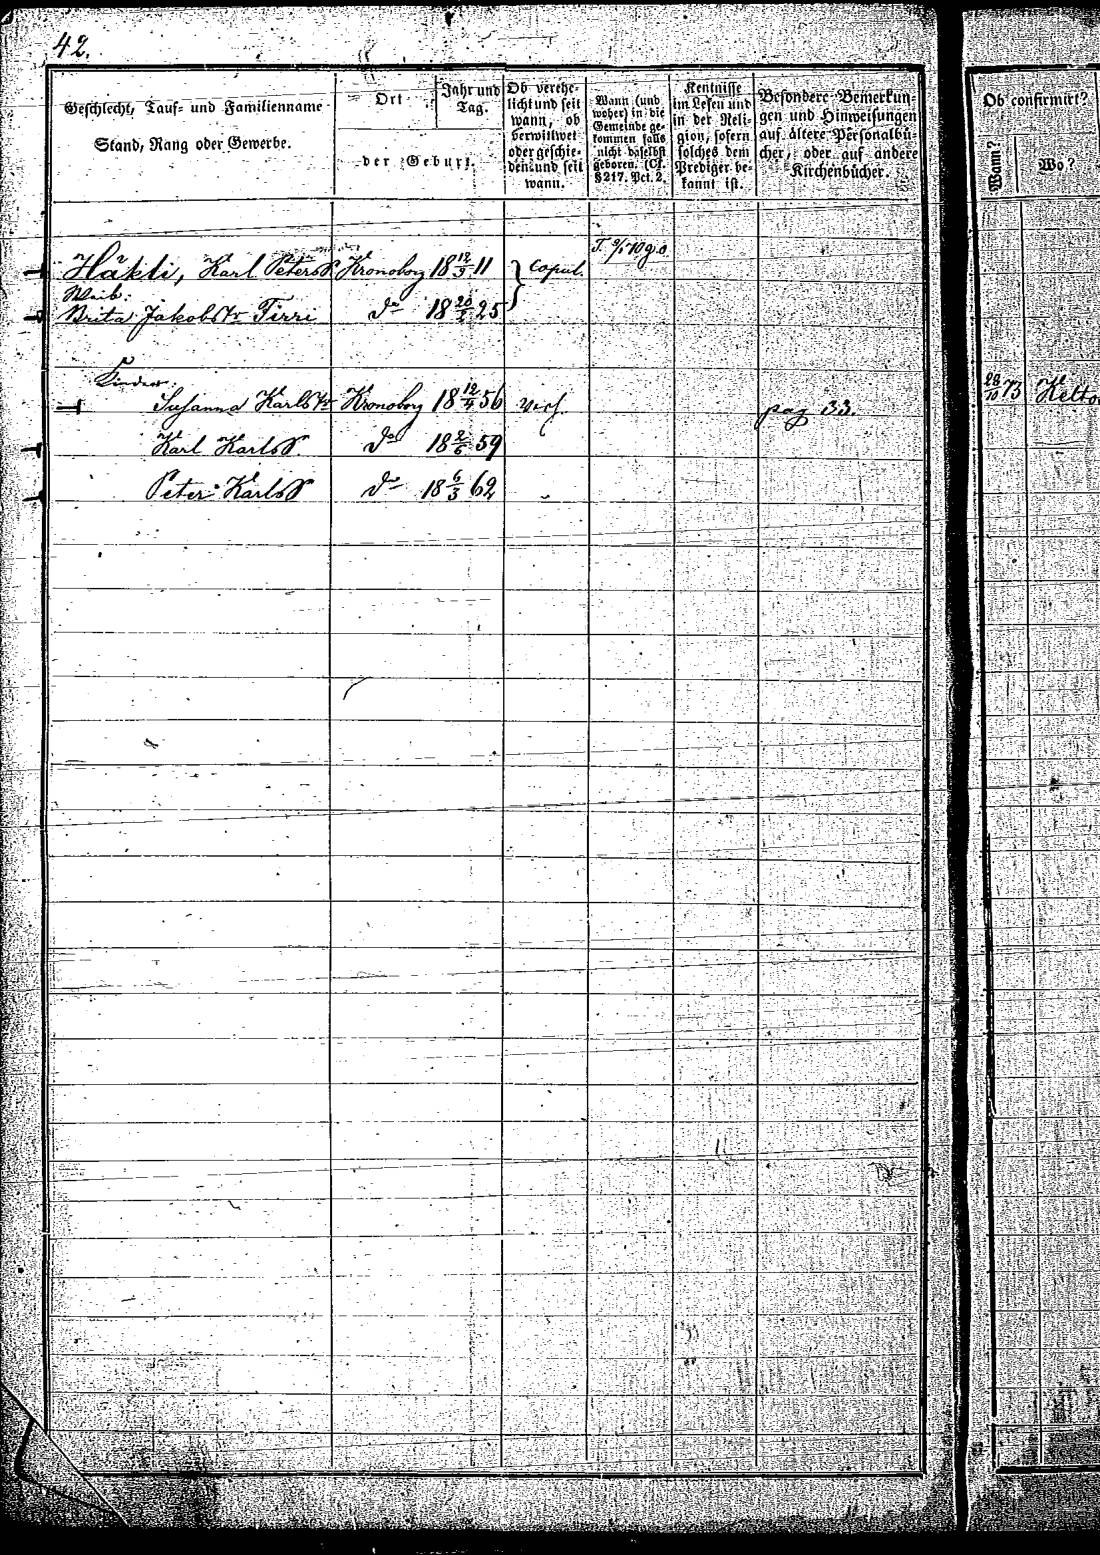 42.
Geschlecht, Tauf- und Familienname
Stand, Rang oder Gewerbe.
Ort
Jahr und
Tag.
der Geburt.
Ob verehe-
licht und seit
wann, ob
verwittwet
oder geschie-
den und seit
wann.
Wann (und
woher) in die
Gemeinde ge-
kommen falls
nicht daselbst
geboren. (Cf.
§ 217. Pct. 2.
Kentnisse
im Lesen und
in der Reli-
gion, sofern
solches dem
Prediger be-
kannt ist.
Besondere Bemerkun-
gen und Hinweisungen
auf ältere Personalbü-
cher, oder auf andere
Kirchenbücher.
Ob confirmirt?
Wann?
Wo?
Häkli, Karl Peterss. Kronoborg 18 12/3 11 copul.
Weib:
Brita Jakobstr Tirri do 18 20/2 25
Kinder:
Susanna Karlstr Kronoborg 18 12/4 56 verh. pag 33. 28/10 73 Kelto
Karl Karlss. do 18 2/6 59
Peter Karlss do 18 6/3 62